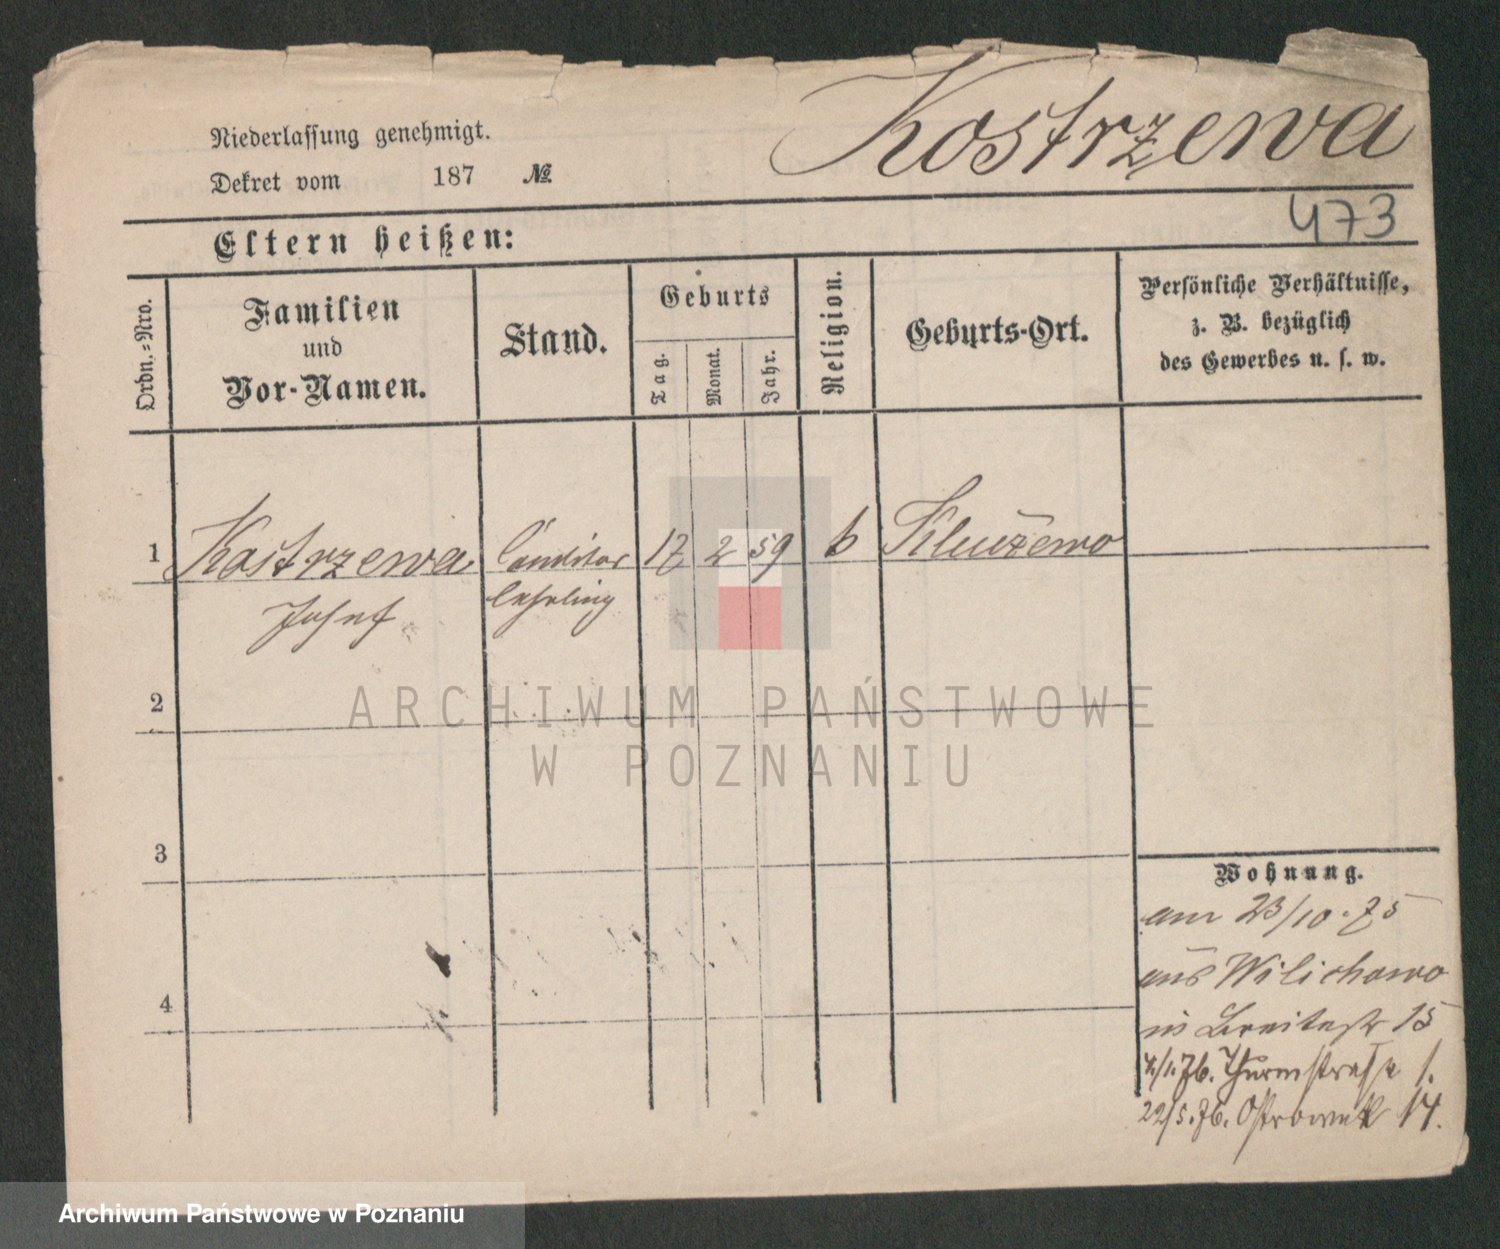 Kostrzewa
Niederlassung genehmigt.
Dekret vom 187 №
473
Eltern heißen:
Ordn.-Nro.
Familien
und
Vor-Namen.
Stand.
Geburts
Tag.
Monat.
Jahr.
Religion.
Geburts-Ort.
Persönliche Verhältnisse,
z. B. bezüglich
des Gewerbes u. s. w.
1 Kostrzewa Conditor 17 2 59 Kluczewo
Josef lehrling
2
3
4
Wohnung.
am 23/10. 75
aus Wilichowo
in Breitestr 15
4/1. 76. Thurmstrasse 1.
22/5. 76. Ostrowek 14.
ARCHIWUM PAŃSTWOWE
W POZNANIU
Archiwum Państwowe w Poznaniu